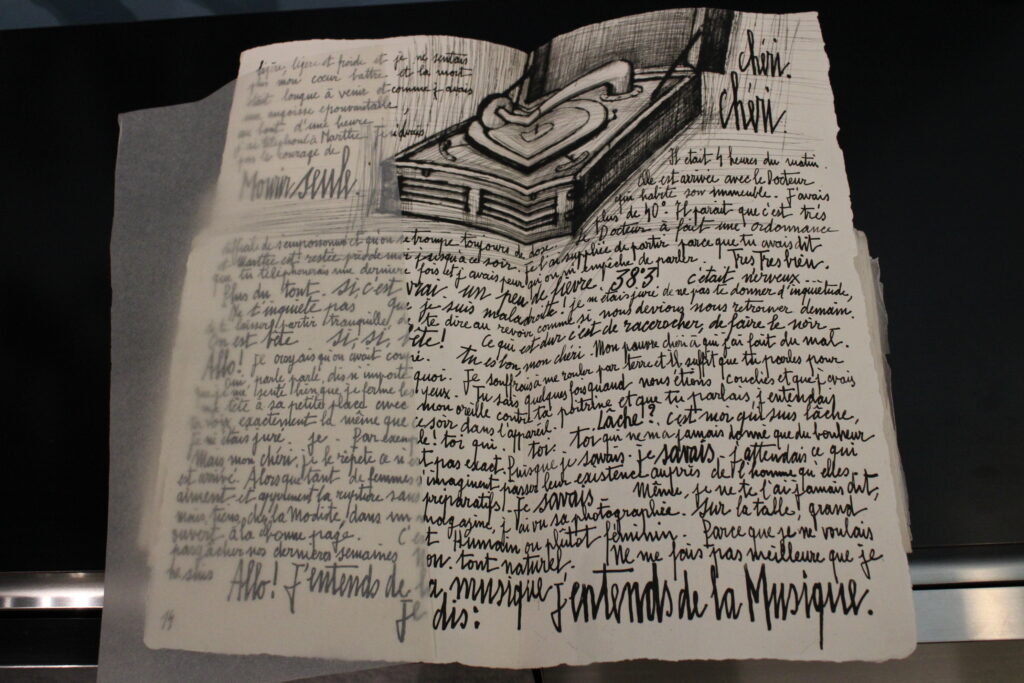 légère, légère et froide et je ne sentais
plus mon cœur battre et la mort
était longue à venir et comme j'avais
une angoisse épouvantable,
au bout d'une heure
j'ai téléphoné à Marthe. Je n'avais
pas le courage de
Mourir seule.
chéri.
chéri
Il était 4 heures du matin.
Elle est arrivée avec le Docteur
qui habite son immeuble. J'avais
plus de 40°. Il parait que c'est très
difficile de s'empoisonner et qu'on se trompe toujours de dose. Le Docteur à fait une ordonnance
et Marthe est restée près de moi jusqu'à ce soir. Je l'ai suppliée de partir parce que tu avais dit
que tu téléphonerais une dernière fois et j'avais peur qu'on m'empêche de parler. Très Très bien.
Plus du tout. Si, c'est vrai un peu de fièvre. 38°3 c'était nerveux
Ne t'inquiète pas que je suis maladroite! je m'étais juré de ne pas te donner d'inquiétude,
de te laisser partir tranquille, de te dire au revoir comme si nous devions nous retrouver demain.
On est bête Si, si, bête! Ce qui est dur c'est de raccrocher, de faire le noir
Allo! Je croyais qu'on avait coupé. Tu es bon, mon chéri. Mon pauvre chéri à qui j'ai fait du mal.
Oui, parle parle, dis n'importe quoi. Je souffrais à me rouler par terre et il suffit que tu parles pour
que je me sente bien, que je ferme les yeux. Tu sais quelquefois quand nous étions couchés et que j'avais
ma tête à sa petite place avec mon oreille contre ta poitrine et que tu parlais, j'entendais
ta voix, exactement la même que ce soir dans l'appareil. Lâche!? c'est moi qui suis lâche,
Je m'étais juré. je. Par exemple! toi qui. toi. toi qui ne m'a jamais donné que du bonheur
Mais mon chéri, je le répète ce n'est pas exact. Puisque je savais. je savais. j'attendais ce qui
est arrivé. Alors que tant de femmes s'imaginent passer leur existence auprès de l'homme qu'elles
aiment et apprennent la rupture sans préparatifs. Je savais Même, je ne te l'ai jamais dit,
mais, tiens, chez la Modiste, dans un magazine, j'ai vu sa photographie. Sur la table! grand
ouvert à la bonne page. C'est Humain ou plûtot féminin. Parce que je ne voulais
pas gâcher nos dernières semaines Non, tout naturel. Ne me fais pas meilleure que je
ne suis
Allo! J'entends de la musique
Je dis: J'entends de la Musique.
14